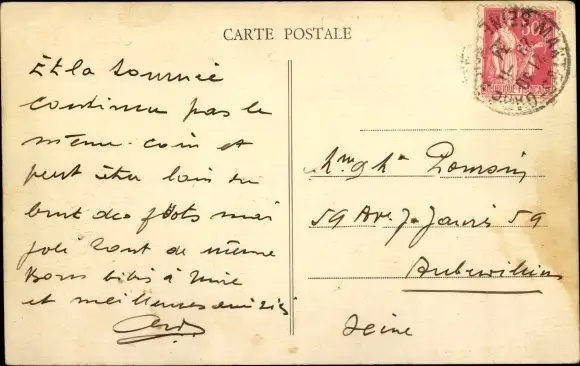 CARTE POSTALE
Et la tournée
continue par le
même coin et
peut être loin du
bruit des flots mais
joli tout de même
Bons bibis à
et meilleures amitiés
50c
REPUBLIQUE FRANCAISE
59 Ave J. Jaurès 59
Aubervilliers
Seine